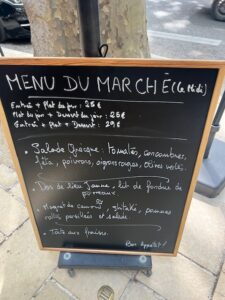 MENU DU MARCHÉ (Le Midi)
Entrée + Plat du jour : 25€
Plat du jour + Dessert du jour : 25€
Entrée + Plat + Dessert : 29€
Salade Grecque : tomates, concombres,
féta, poivrons, oignons rouges, olives
Dos de Lieu Jaune, lit de fondue de
poireaux
ou
Magret de canard, pommes
persillées et salade
Tarte aux fraises.
Bon Appétit !